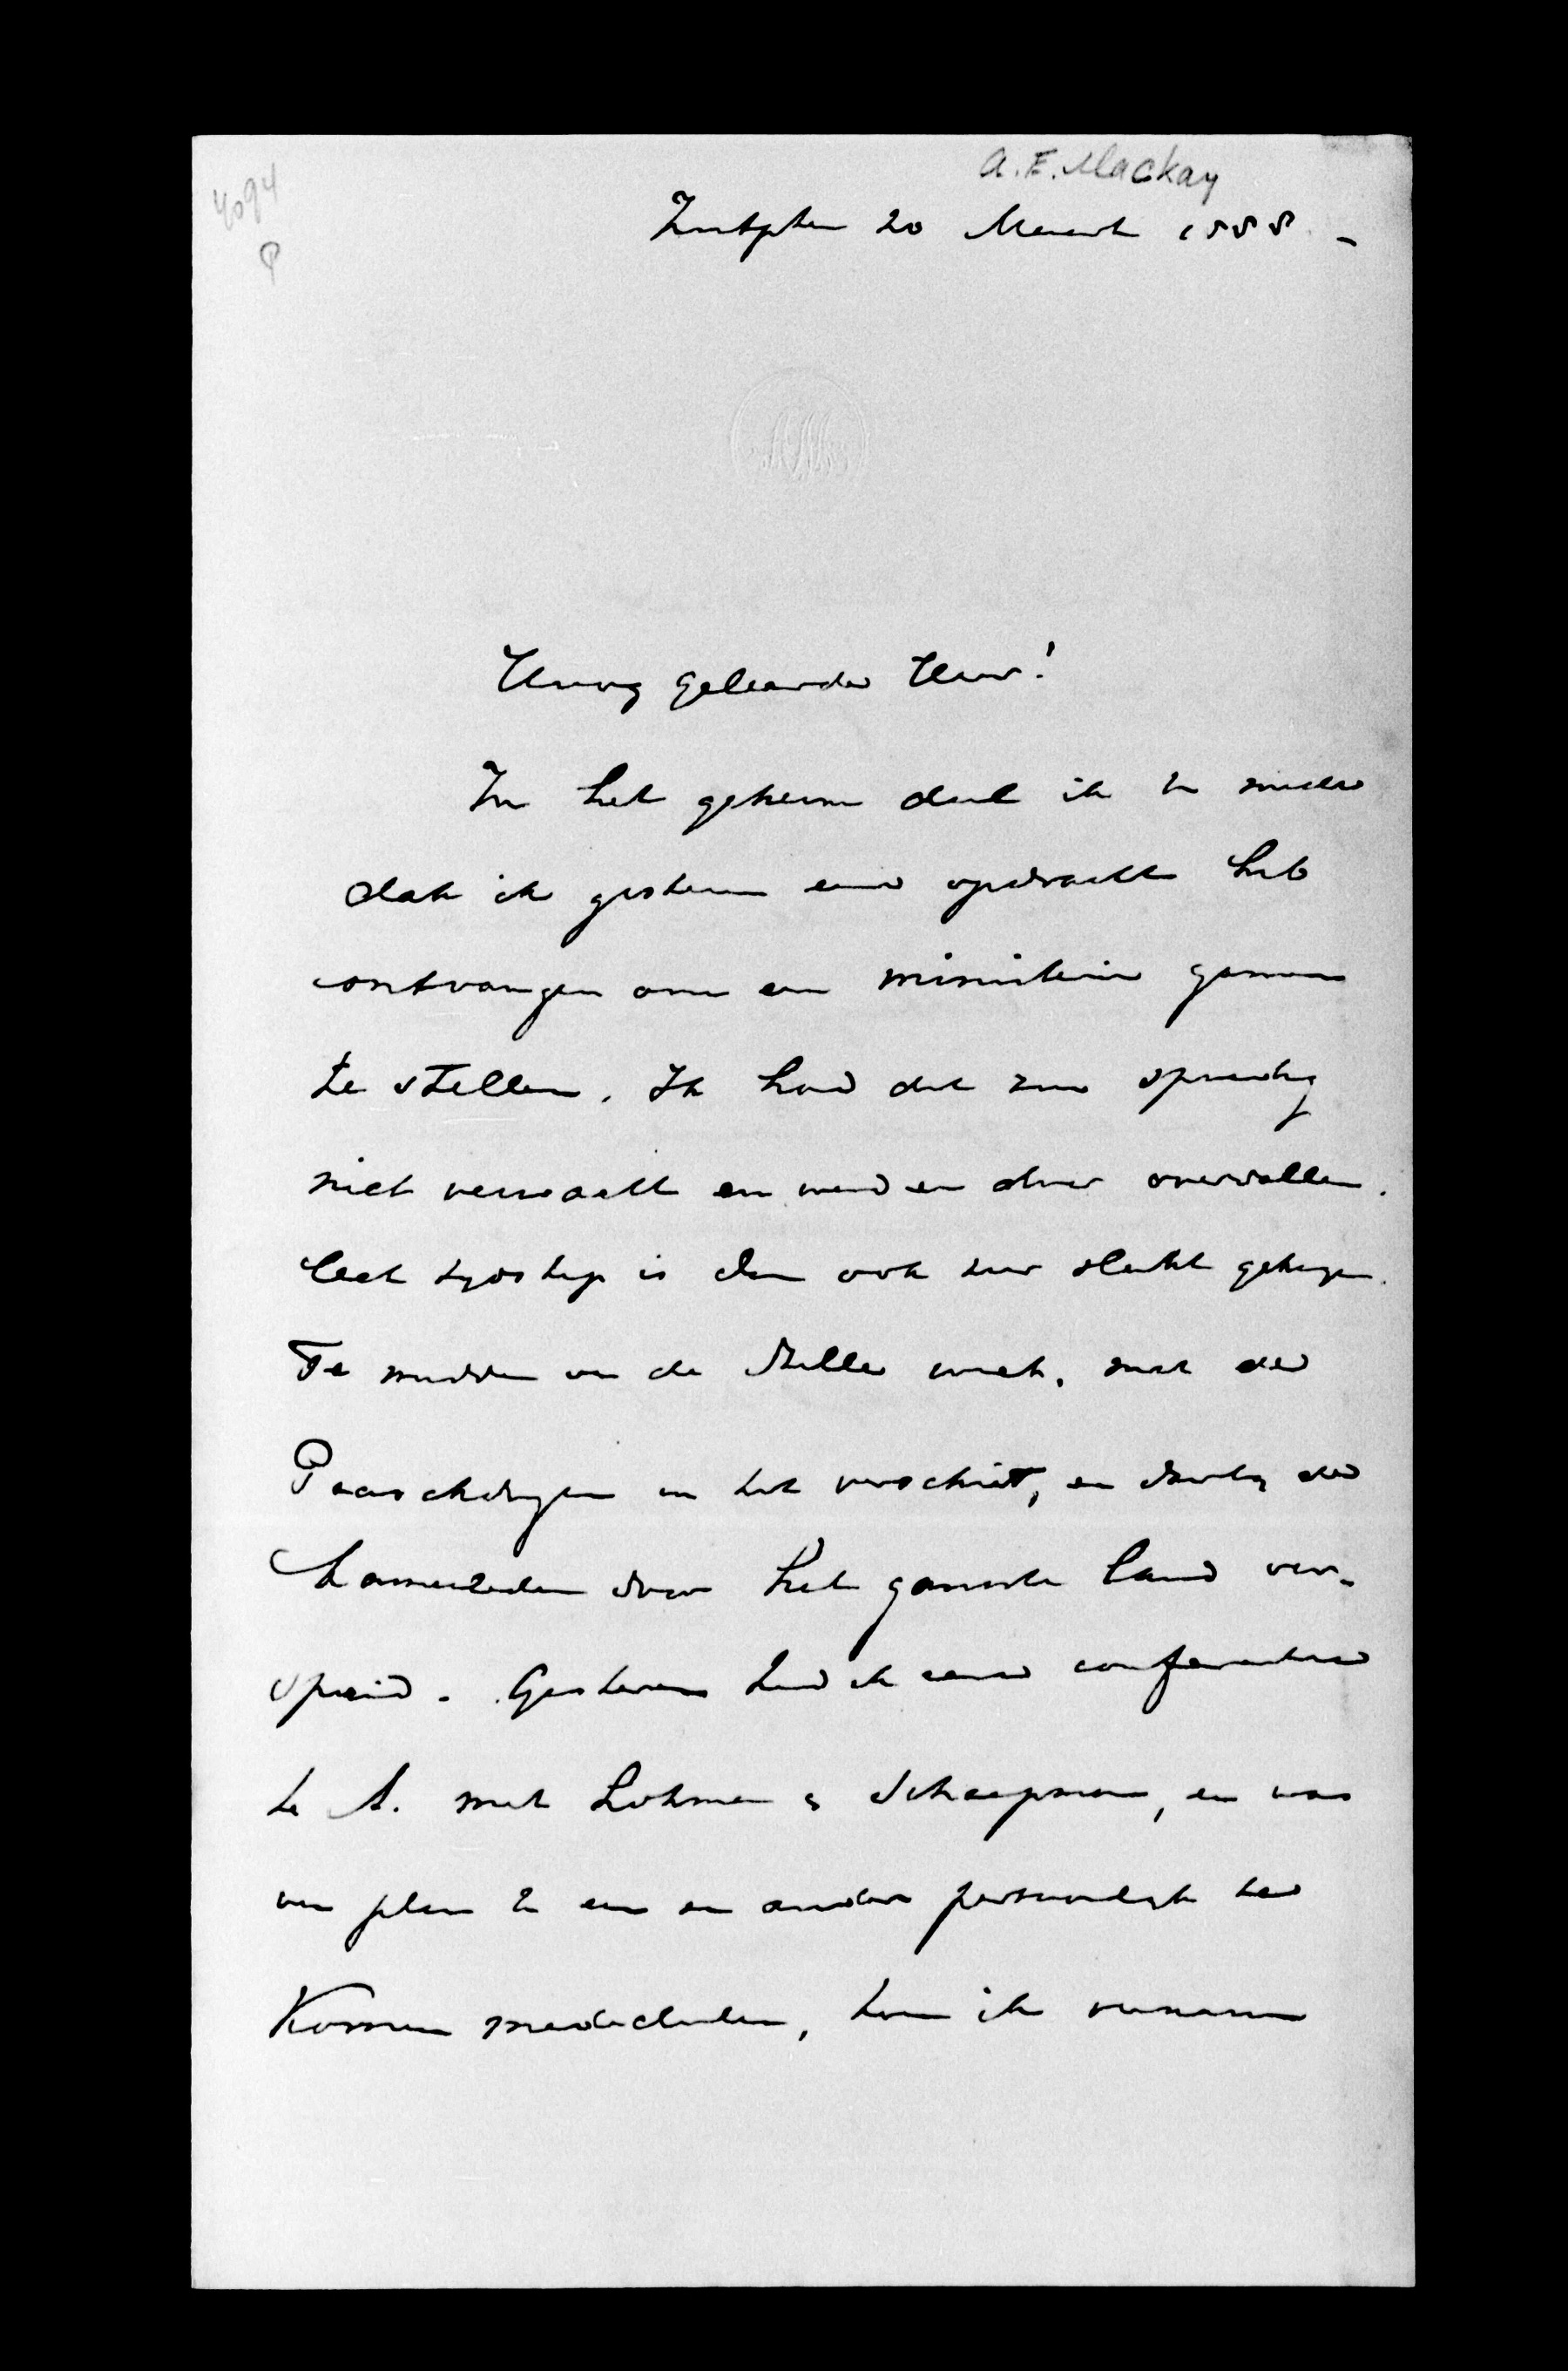 4094
P
A. E. Mackay
Zutphen 20 Maart 1888. -
Hoog geleerde Heer!
In het geheim deel ik U mede
dat ik gisteren eene opdracht heb
ontvangen om een ministerie samen
te stellen. Ik had dat zoo spoedig
niet verwacht en werd er door overvallen.
Het tydstip is dan ook zeer slecht gekozen.
Te midden van de stille week, met de
Paaschdagen in het verschiet, en dan de
Kamerleden door het gansche land ver-
spreid. Gisteren had ik eene conferentie
te A. met Lohman & Schaepman, en was
van plan U een en ander persoonlyk te
komen mededeelen, toen ik vernam